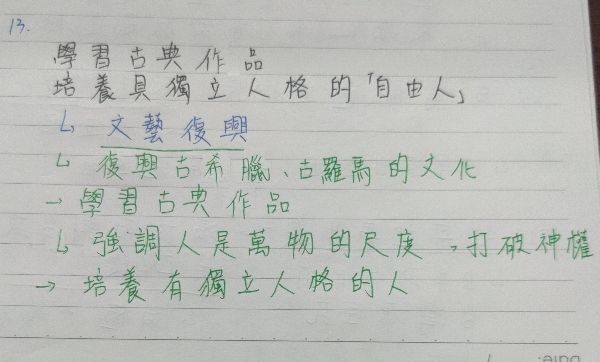 13.
學習古典作品
培養具獨立人格的「自由人」
↳ 文藝復興
↳ 復興古希臘、古羅馬的文化
→ 學習古典作品
↳ 強調人是萬物的尺度,打破神權
→ 培養有獨立人格的人